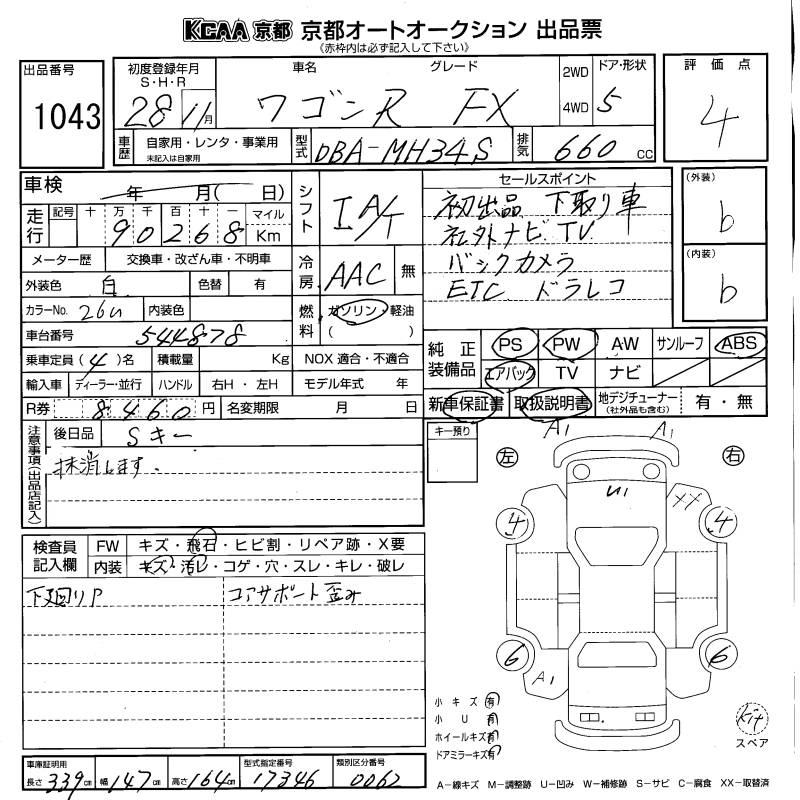 KCAA 京都 京都オートオークション 出品票
(赤枠内は必ず記入して下さい)
出品番号
1043
初度登録年月
S・H・R
28 11月
車名
ワゴンR
グレード
FX
2WD
4WD
ドア・形状
5
評価点
4
車歴
自家用・レンタ・事業用
未記入は自家用
型式
DBA-MH34S
排気
660 CC
車検
年 月( 日)
走行
記号 十 万 千 百 十 一
9 0 2 6 8
マイル
Km
シフト
I A/T
セールスポイント
初出品 下取り車
社外ナビ TV
バックカメラ
ETC ドラレコ
(外装)
b
(内装)
b
メーター歴
交換車・改ざん車・不明車
外装色
白
色替
有
冷房
AAC
無
カラーNo.
26U
内装色
燃料
ガソリン・軽油
( )
車台番号
544878
乗車定員(4)名
積載量
Kg
NOX 適合・不適合
輸入車
ディーラー・並行
ハンドル
右H・左H
モデル年式 年
R券
8,460円
名変期限 月 日
純正装備品
PS
PW
AW
サンルーフ
ABS
エアバック
TV
ナビ
新車保証書
取扱説明書
地デジチューナー
(社外品も含む)
有・無
注意事項(出品店記入)
後日品
Sキー
抹消します.
キー預り
左
右
A1
A1
U1
XX
4
4
6
6
A1
検査員
記入欄
FW
キズ・飛石・ヒビ割・リペア跡・X要
内装
キズ・汚レ・コゲ・穴・スレ・キレ・破レ
下廻りP
コアサポート歪み
小キズ 有
小U 有
ホイールキズ 有
ドアミラーキズ 有
Kit
スペア
車庫証明用
長さ 339cm
幅 147cm
高さ 164cm
型式指定番号
17346
類別区分番号
0062
A−線キズ M−調整跡 U−凹み W−補修跡 S−サビ C−腐食 XX−取替済